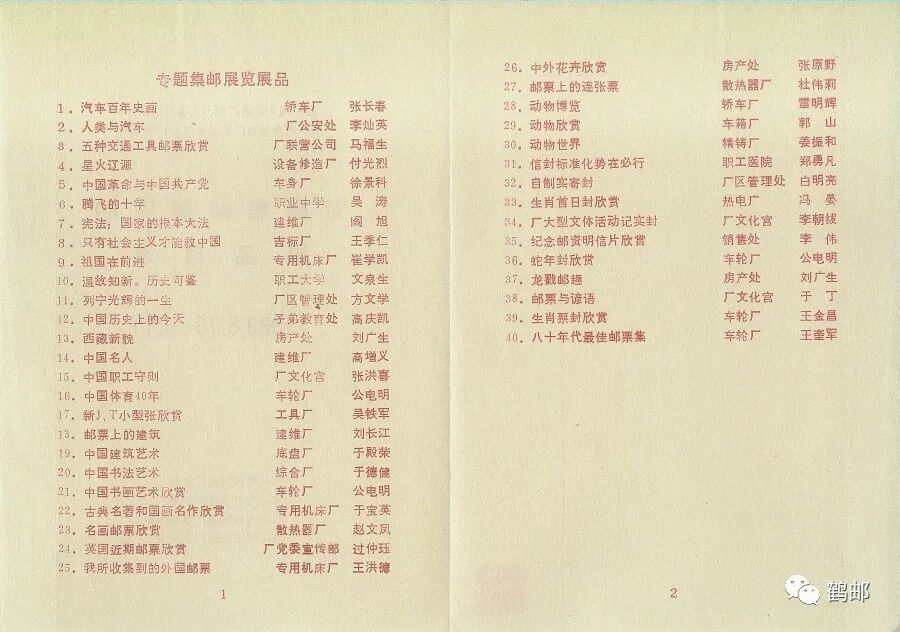 专题集邮展览展品
1．汽车百年史画 轿车厂 张长春
2．人类与汽车 厂公安处 李灿英
3．五种交通工具邮票欣赏 厂联营公司 马福生
4．星火辽源 设备修造厂 付光烈
5．中国革命与中国共产党 车身厂 徐景科
6．腾飞的十年 职业中学 吴涛
7．宪法：国家的根本大法 建维厂 阎旭
8．只有社会主义才能救中国 吉标厂 王季仁
9．祖国在前进 专用机床厂 崔学凯
10．温故知新。历史可鉴 职工大学 文泉生
11．列宁光辉的一生 厂区管理处 方文学
12．中国历史上的今天 子弟教育处 高庆凯
13．西藏新貌 房产处 刘广生
14．中国名人 建维厂 高增义
15．中国职工守则 厂文化宫 张洪喜
16．中国体育40年 车轮厂 公电明
17．新J．T小型张欣赏 工具厂 吴铁军
18．邮票上的建筑 建维厂 刘长江
19．中国建筑艺术 底盘厂 于殿荣
20．中国书法艺术 综合厂 于德健
21．中国书画艺术欣赏 车轮厂 公电明
22．古典名著和国画名作欣赏 专用机床厂 于宝英
23．名画邮票欣赏 散热器厂 赵文凤
24．英国近期邮票欣赏 厂党委宣传部 过仲珏
25．我所收集到的外国邮票 专用机床厂 王洪德
1
26．中外花卉欣赏 房产处 张原野
27．邮票上的连张票 散热器厂 杜伟莉
28．动物博览 轿车厂 雷明辉
29．动物欣赏 车箱厂 郭山
30．动物世界 精铸厂 姜振和
31．信封标准化势在必行 职工医院 郑勇凡
32．自制实寄封 厂区管理处 白明亮
33．生肖首日封欣赏 热电厂 冯晏
34．厂大型文体活动记实封 厂文化宫 李朝绂
35．纪念邮资明信片欣赏 销售处 李伟
36．蛇年封欣赏 车轮厂 公电明
37．龙戳邮趣 房产处 刘广生
38．邮票与谚语 厂文化宫 于丁
39．生肖票封欣赏 车轮厂 王金昌
40．八十年代最佳邮票集 车轮厂 王奎军
2
鹤邮